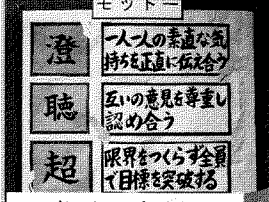 モットー
澄
一人一人の素直な気
持ちを正直に伝え合う
聴
互いの意見を尊重し
認め合う
超
限界をつくらず全員
で目標を突破する